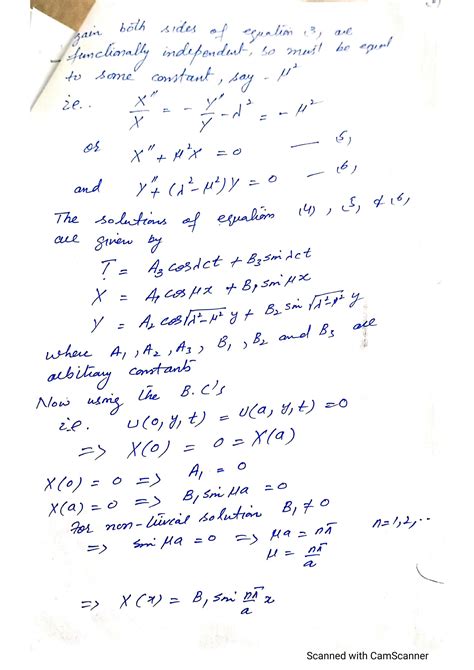 gain both sides of equation (3) are
functionally independent, so must be equal
to some constant, say -μ²
i.e.. X''/X = - Y''/Y - λ² = -μ²
or X'' + μ²X = 0 — (5)
and Y'' + (λ²-μ²)Y = 0 — (6)
The solutions of equation (4), (5) & (6)
are given by
T = A₃ cosλct + B₃ sinλct
X = A₁ cos μx + B₁ sin μx
Y = A₂ cos√λ²-μ² y + B₂ sin √λ²-μ² y
where A₁, A₂, A₃, B₁, B₂ and B₃ are
arbitrary constants
Now using the B.C's
i.e. u(0,y,t) = u(a,y,t) = 0
=> X(0) = 0 = X(a)
X(0) = 0 => A₁ = 0
X(a) = 0 => B₁ sin μa = 0
For non-trivial solution B₁ ≠ 0
=> sin μa = 0 => μa = nπ n=1,2,..
μ = nπ/a
=> X(x) = B₁ sin nπ/a x
Scanned with CamScanner